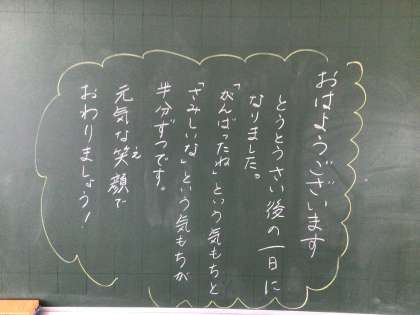 おはようございます
とうとうさい後の一日に
なりました。
「がんばったね」という気もちと
「さみしいな」という気もちが
半分ずつです。
元気な笑顔で
え
おわりましょう!